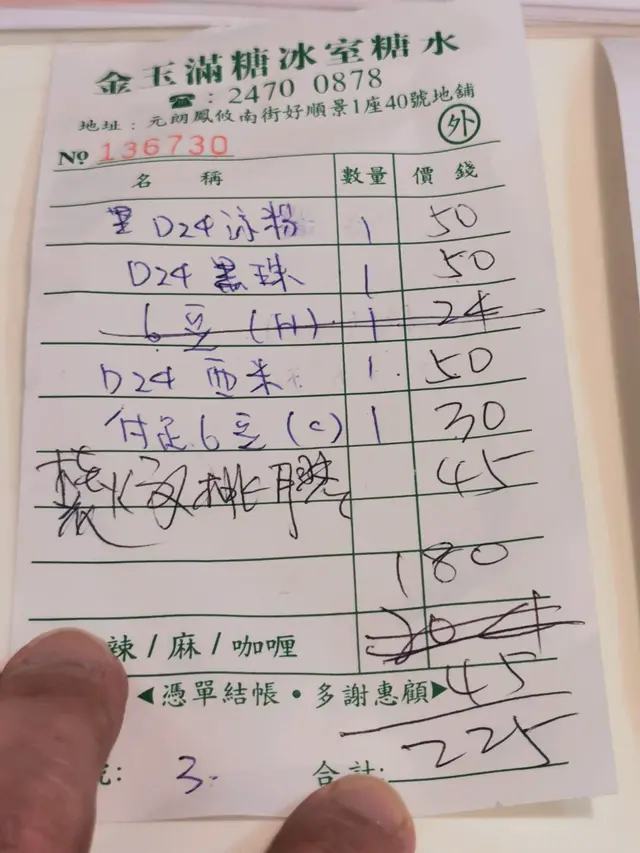 金玉滿糖冰室糖水
☎：2470 0878
地址：元朗鳳攸南街好順景1座40號地舖
外
No 136730
名 稱 數量 價 錢
D24 涼粉 1 50
D24 黑珠 1 50
6豆 (H) 1 24
D24 西米 1 50
付足6豆 (C) 1 30
桃膠 45
180
204
辣 / 麻 / 咖喱
◀憑單結帳・多謝惠顧▶ 45
225
: 3 合計: